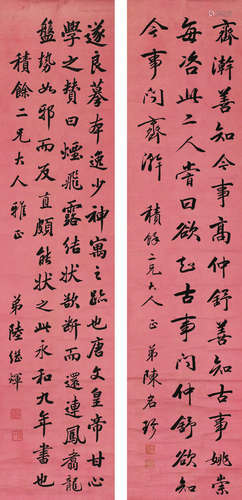 齐澣善知今事高仲舒善知古事姚崇
每咨此二人尝曰欲知古事问仲舒欲知
今事问齐澣
積餘二兄大人正 弟陳名珍
遂良摹本逸少神寓之跡也唐文皇帝甘心
學之贊曰煙飛露結狀欲斷而還連鳳翥龍
盤勢如邪而反直頗能狀之此永和九年書也
積餘二兄大人雅正 弟陸继輝